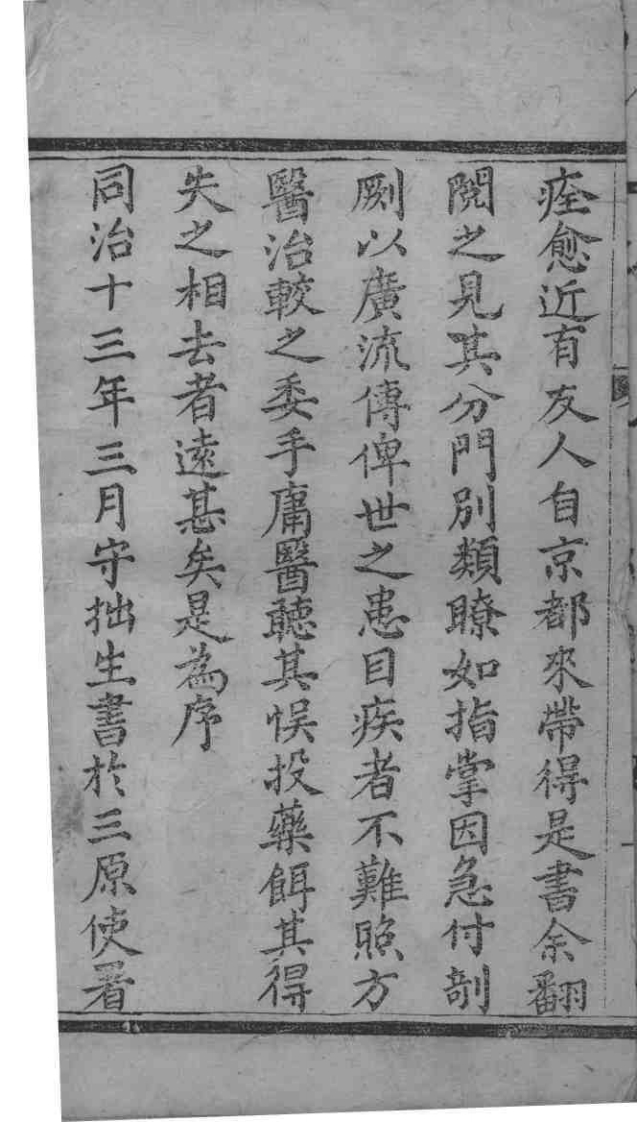 痊愈近有友人自京都來帶得是書余翻
閱之見其分門別類瞭如指掌因急付剞
劂以廣流傳俾世之患目疾者不難照方
醫治較之委手庸醫聽其悞投藥餌其得
失之相去者遠甚矣是為序
同治十三年三月守拙生書於三原使署